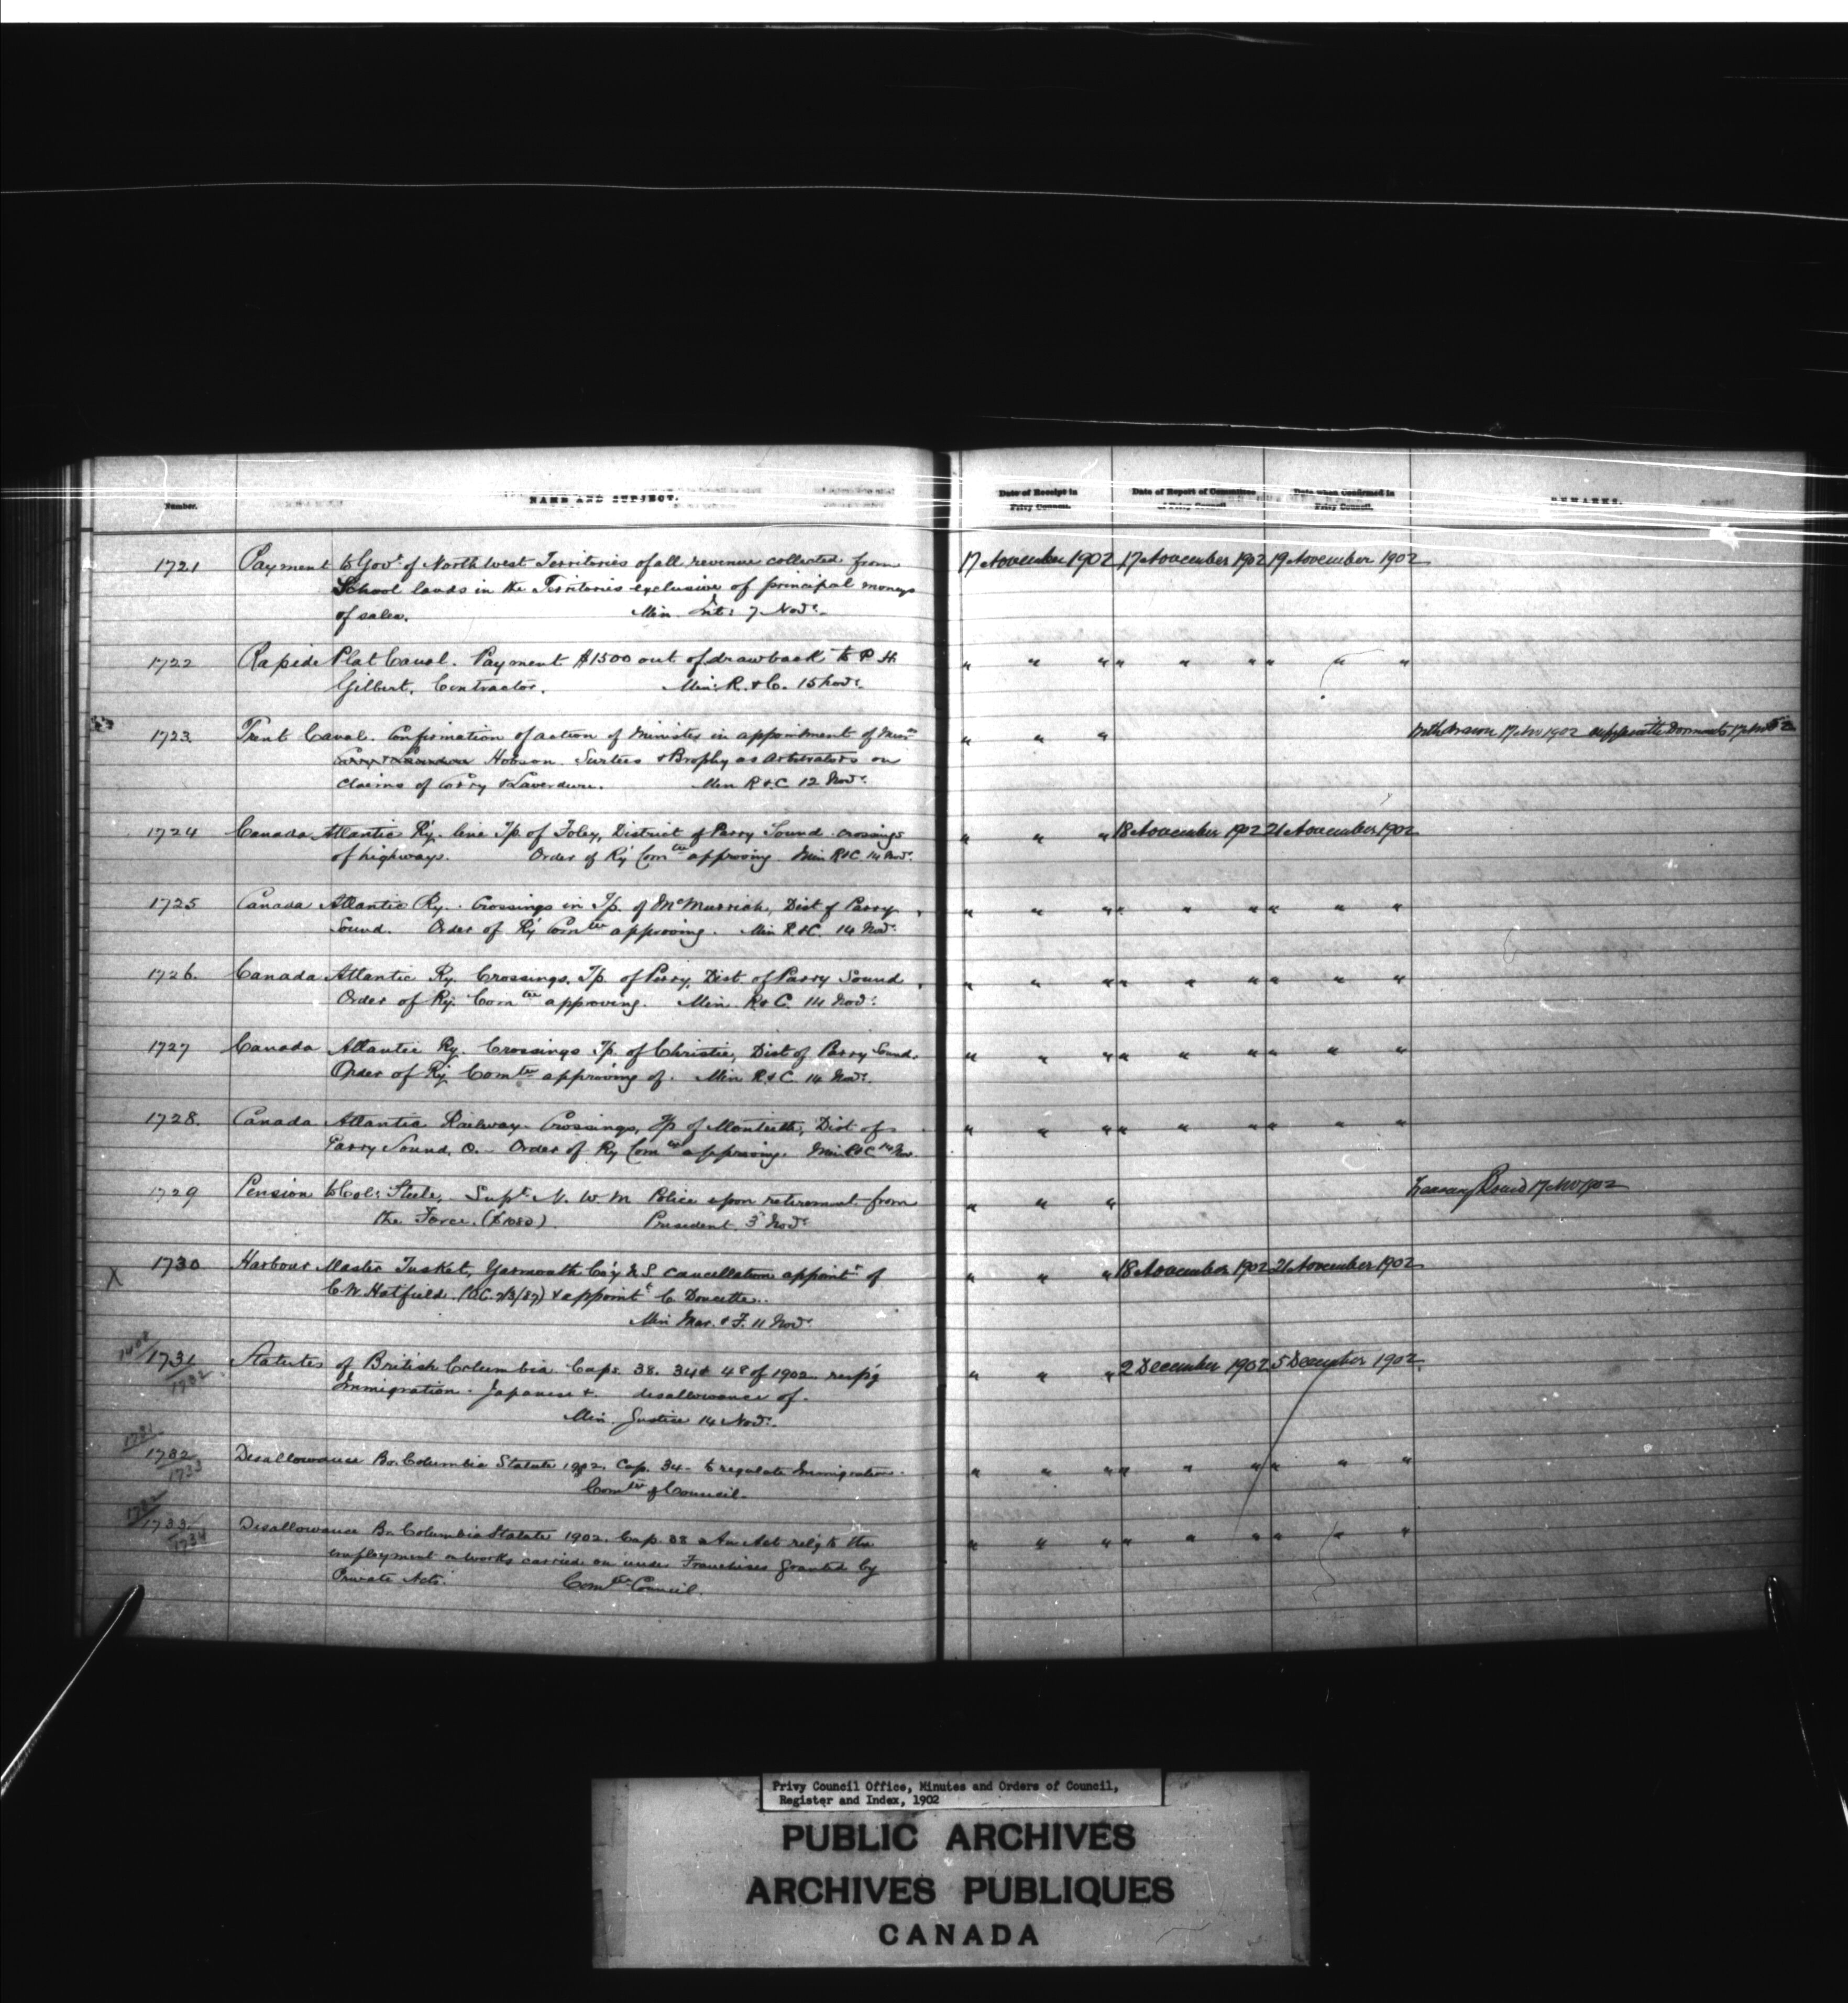 Number.
NAME AND SUBJECT.
Date of Receipt in Privy Council.
Date of Report of Committee of Privy Council
Date when Confirmed in Privy Council.
REMARKS.
1721 Payment to Govt of North West Territories of all revenue collected from 17 November 1902 17 November 1902 19 November 1902
School lands in the Territories exclusive of principal moneys
of sales. Min. Int: 7 Novr.
1722 Rapide Plat Canal. Payment $1500 out of drawback to P. H. " " " " " " " " "
Gilbert, Contractor. Min: R. & C. 15 Novr.
1723 Trent Canal. Confirmation of action of Minister in appointment of " " " Withdrawn 17 Nov 1902
Hobson. Surtees & Brophy as Arbitrators on
claims of Corry & Laverdure. Min R & C 12 Novr.
1724 Canada Atlantic Ry. line Tp. of Foley, District of Parry Sound crossings " " " 18 November 1902 21 November 1902
of highways. Order of Ry Comtee approving Min R&C 14 Novr.
1725 Canada Atlantic Ry. Crossings in Tp. of McMurrich, Dist of Parry " " " " " " " " "
Sound. Order of Ry Comtee approving. Min R. &C. 14 Novr.
1726. Canada Atlantic Ry. Crossings. Tp. of Perry, Dist. of Parry Sound " " " " " " " " "
Order of Ry. Comtee approving. Min. R & C. 14 Novr.
1727 Canada Atlantic Ry. Crossings Tp. of Christie, Dist of Parry Sound. " " " " " " " " "
Order of Ry. Comtee approving of. Min R & C. 14 Novr.
1728. Canada Atlantic Railway. Crossings, Tp of Monteith, Dist of " " " " " " " " "
Parry Sound, O. - Order of Ry Comtee approving. Min R&C 14 Nov
1729 Pension to Col: Steele, Supt. N. W. M Police upon retirement from " " " Treasury Board 17 Nov 1902
the Force. ($1080). President. 3 Novr
X 1730 Harbour Master Tusket, Yarmouth Co'y N.S cancellation appoint't of " " " 18 November 1902 21 November 1902
C. W. Hatfield. (O.C. 7/3/87) & appoint't C. Doucette.
Min Mar. & F. 11 Novr
1731 Statutes of British Columbia Caps. 38. 34 & 48 of 1902. resp'g " " " 2 December 1902 5 December 1902
1732
Immigration. Japanese & disallowance of.
Min. Justice 14 Novr.
1731
1732 Disallowance Br. Columbia Statute 1902. Cap. 34 - to regulate Immigration. " " " " " " " " "
1733
Comtee of Council.
1732
1733 Disallowance Br. Columbia Statute 1902. Cap. 38 An Act rel'g to the " " " " " " " " "
1734
employment on works carried on under Franchises Granted by
Private Acts. Comtee Council.
Privy Council Office, Minutes and Orders of Council,
Register and Index, 1902
PUBLIC ARCHIVES
ARCHIVES PUBLIQUES
CANADA